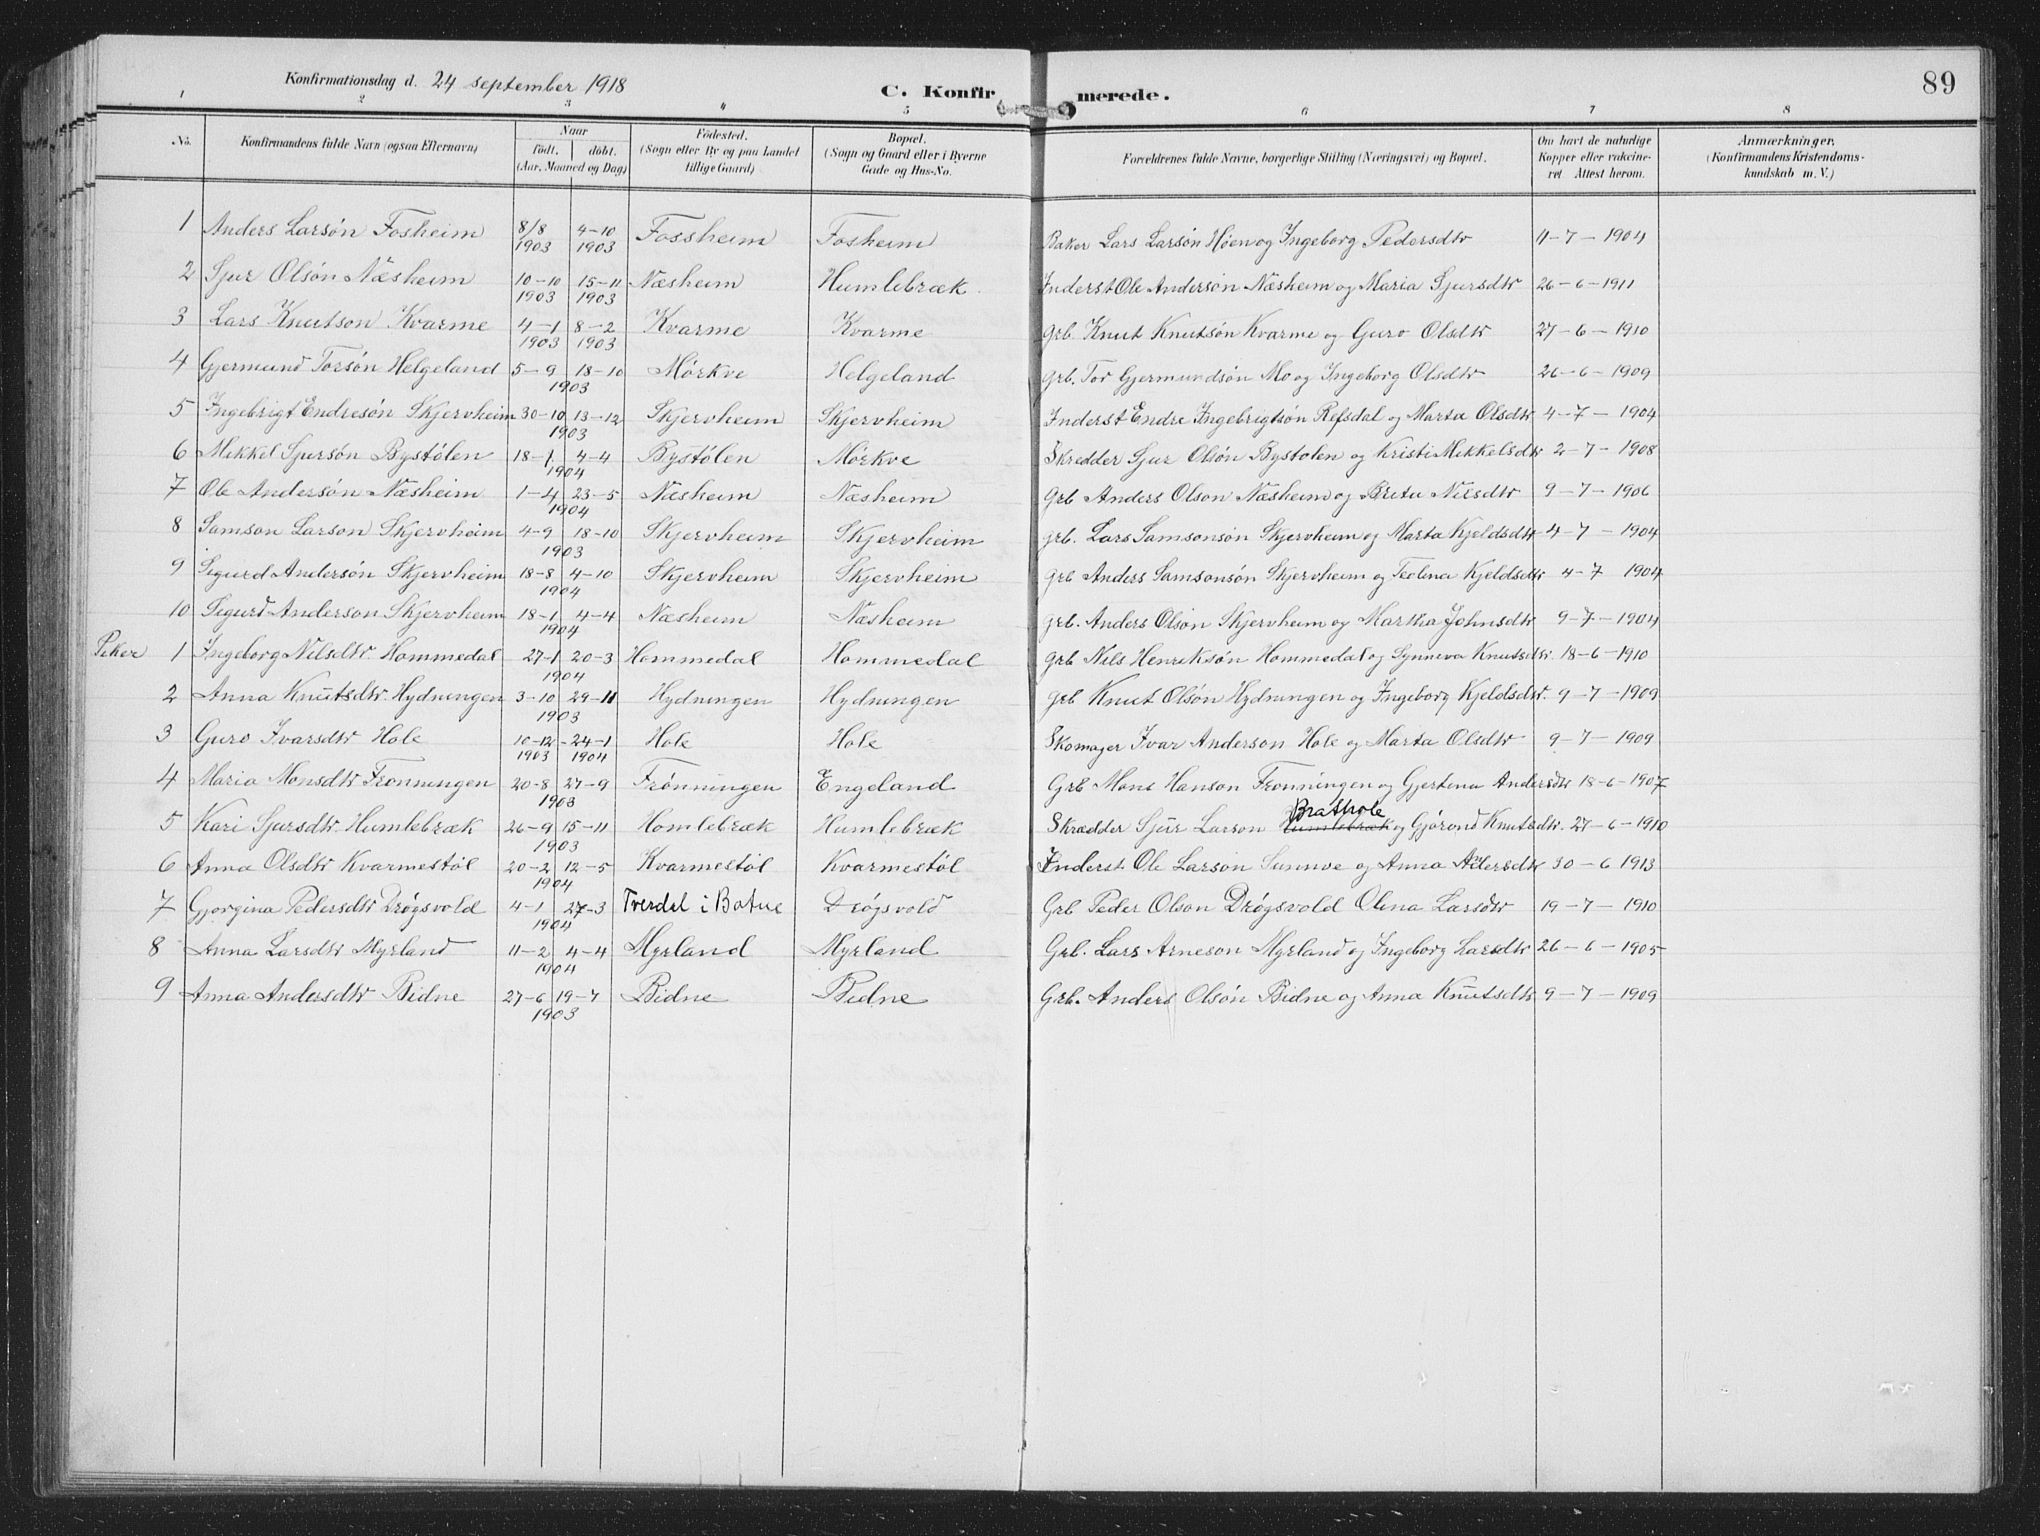 Konfirmationsdag d. 24 september 1918
C. Konfirmerede.
89
1 2 3 4 5 6 7 8
No. Konfirmandens fulde Navn (ogsaa Efternavn) Naar født. døbt. (Aar, Maaned og Dag) Fødested. (Sogn eller By og paa Landet tillige Gaard) Bopæl. (Sogn og Gaard eller i Byerne Gade og Hus-No. Forældrenes fulde Navne, borgerlige Stilling (Næringsvei) og Bopæl. Om havt de naturlige Kopper eller vakcineret. Attest herom. Anmærkninger, (Konfirmandens Kristendomskundskab m. V.)
1 Anders Larsøn Fosheim 8/8 1903 4-10 1903 Fossheim Fosheim Baker Lars Larsøn Høen og Ingeborg Pedersdtr 11-7-1904
2 Sjur Olsøn Næsheim 10-10 1903 15-11 1903 Næsheim Humlebræk Inderst Ole Andersøn Næsheim og Maria Sjursdtr 26-6-1911
3 Lars Knutson Kvarme 4-1 1903 8-2 1903 Kvarme Kvarme Grb. Knut Knutsøn Kvarme og Guro Olsdtr 27-6-1910
4 Gjermund Torsøn Helgeland 5-9 18-10 1903 Mørkve Helgeland Grb. Tor Gjermundsøn Mo og Ingeborg Olsdtr 26-6-1909
5 Ingebrigt Endresøn Skjervheim 30-10 13-12 1903 Skjervheim Skjervheim Inderst Endre Ingebrigtsøn Refsdal og Marta Olsdtr 4-7-1904
6 Mikkel Sjursøn Bystølen 18-1 4-4 1904 Bystølen Mørkve Skredder Sjur Olsøn Bystolen og Kristi Mikkelsdtr 2-7-1908
7 Ole Andersøn Næsheim 1-4 23-5 1904 Næsheim Næsheim Grb Anders Olson Næsheim og Brita Nilsdtr 9-7-1906
8 Samson Larson Skjervheim 4-9 18-10 1903 Skjervheim Skjervheim grb. Lars Samsonsøn Skjervheim og Marta Kjeldsdtr 4-7-1904
9 Sigurd Andersøn Skjervheim 18-8 4-10 1904 Skjervheim Skjervheim grb Anders Samsonsøn Skjervheim og Teolena Kjeldsdtr 4-7 1904
10 Sigurd Anderson Skjervheim 18-1 4-4 1904 Næsheim Næsheim grb. Anders Olsøn Skjervheim og Martha Johnsdtr 9-7-1904
Piker 1 Ingeborg Nilsdtr. Hommedal 27-1 20-3 1904 Hommedal Hommedal grb Nils Henriksøn Hommedal og Synneva Knutsdtr. 18-6-1910
2 Anna Knutsdtr. Hydnungen 3-10 29-11 1903 Hydnungen Hydnungen grb Knut Olsøn Hydnungen og Ingeborg Kjeldsdtr. 9-7-1909
3 Guro Ivarsdtr Hole 10-12 1903 24-1 1904 Hole Hole Skomager Ivar Anderson Hole og Marta Olsdtr 9-7-1909
4 Maria Monsdtr Fronningen 20-8 27-9 1903 Frønningen Engeland Grb Mons Hanson Fronningen og Gjertena Andersdtr 18-6-1907
Brathole
5 Kari Sjursdtr. Humlebræk 26-9 15-11 1903 Homlebræk Humlebræk Skrædder Sjur Larson Humlebræk og Gjørond Knutsdtr. 27-6-1910
6 Anna Olsdtr Kvarmestøl 20-2 12-5 1904 Kvarmestøl Kvarmestøl Inderst Ole Larson Sunnve og Anna Andersdtr 30-6 1913
7 Gjorgina Pedersdtr Drøgsvold 4-1 27-3 1904 Tverdel i Drøgsvold Grb Peder Olson Drøgsvold Olena Larsdtr 19-7-1910
8 Anna Larsdtr Myrland 11-2 4-4 1904 Myrland Myrland Grb. Lars Arneson Myrland og Ingeborg Larsdtr 26-6-1905
9 Anna Andersdtr Bidne 27-6 19-7 1903 Bidne Bidne Grb. Anders Olsøn Bidne og Anna Knutsdtr 9-7-1909